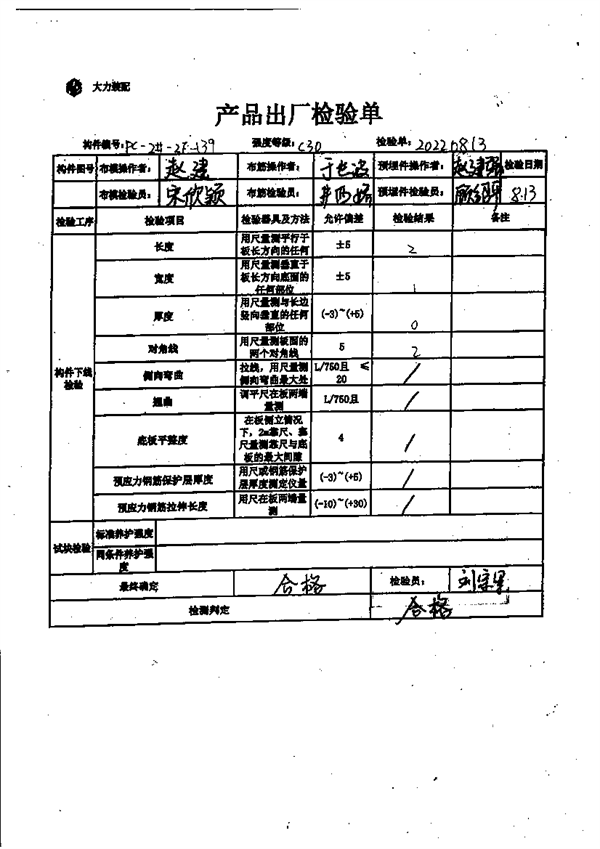 大力装配
产品出厂检验单
构件编号：PC-2#-2F-139 强度等级：C30 检验单：20220813
构件图号 布模操作者：赵建 布筋操作者： 预埋件操作者： 检验日期
布模检验员：宋欣颖 布筋检验员： 预埋件检验员： 8.13
检验工序 检验项目 检验器具及方法 允许偏差 检验结果 备注
构件下线检验
长度 用尺量测平行于板长方向的任何 ±5 2
宽度 用尺量测垂直于板长方向底面的任何部位 ±5 1
厚度 用尺量测与长边竖向垂直的任何部位 (-3)~(+5) 0
对角线 用尺量测板面的两个对角线 5 2
侧向弯曲 拉线，用尺量测侧向弯曲最大处 L/750且 ≤20 /
翘曲 调平尺在板两端量测 L/750且 /
底板平整度 在板侧立情况下，2m靠尺、塞尺量测靠尺与底板的最大间隙 4 /
预应力钢筋保护层厚度 用尺或钢筋保护层厚度测定仪量 (-3)~(+5) /
预应力钢筋拉伸长度 用尺在板两端量测 (-10)~(+30) /
试块检验 标准养护强度
同条件养护强度
最终确定 合格 检验员：
检测判定 合格